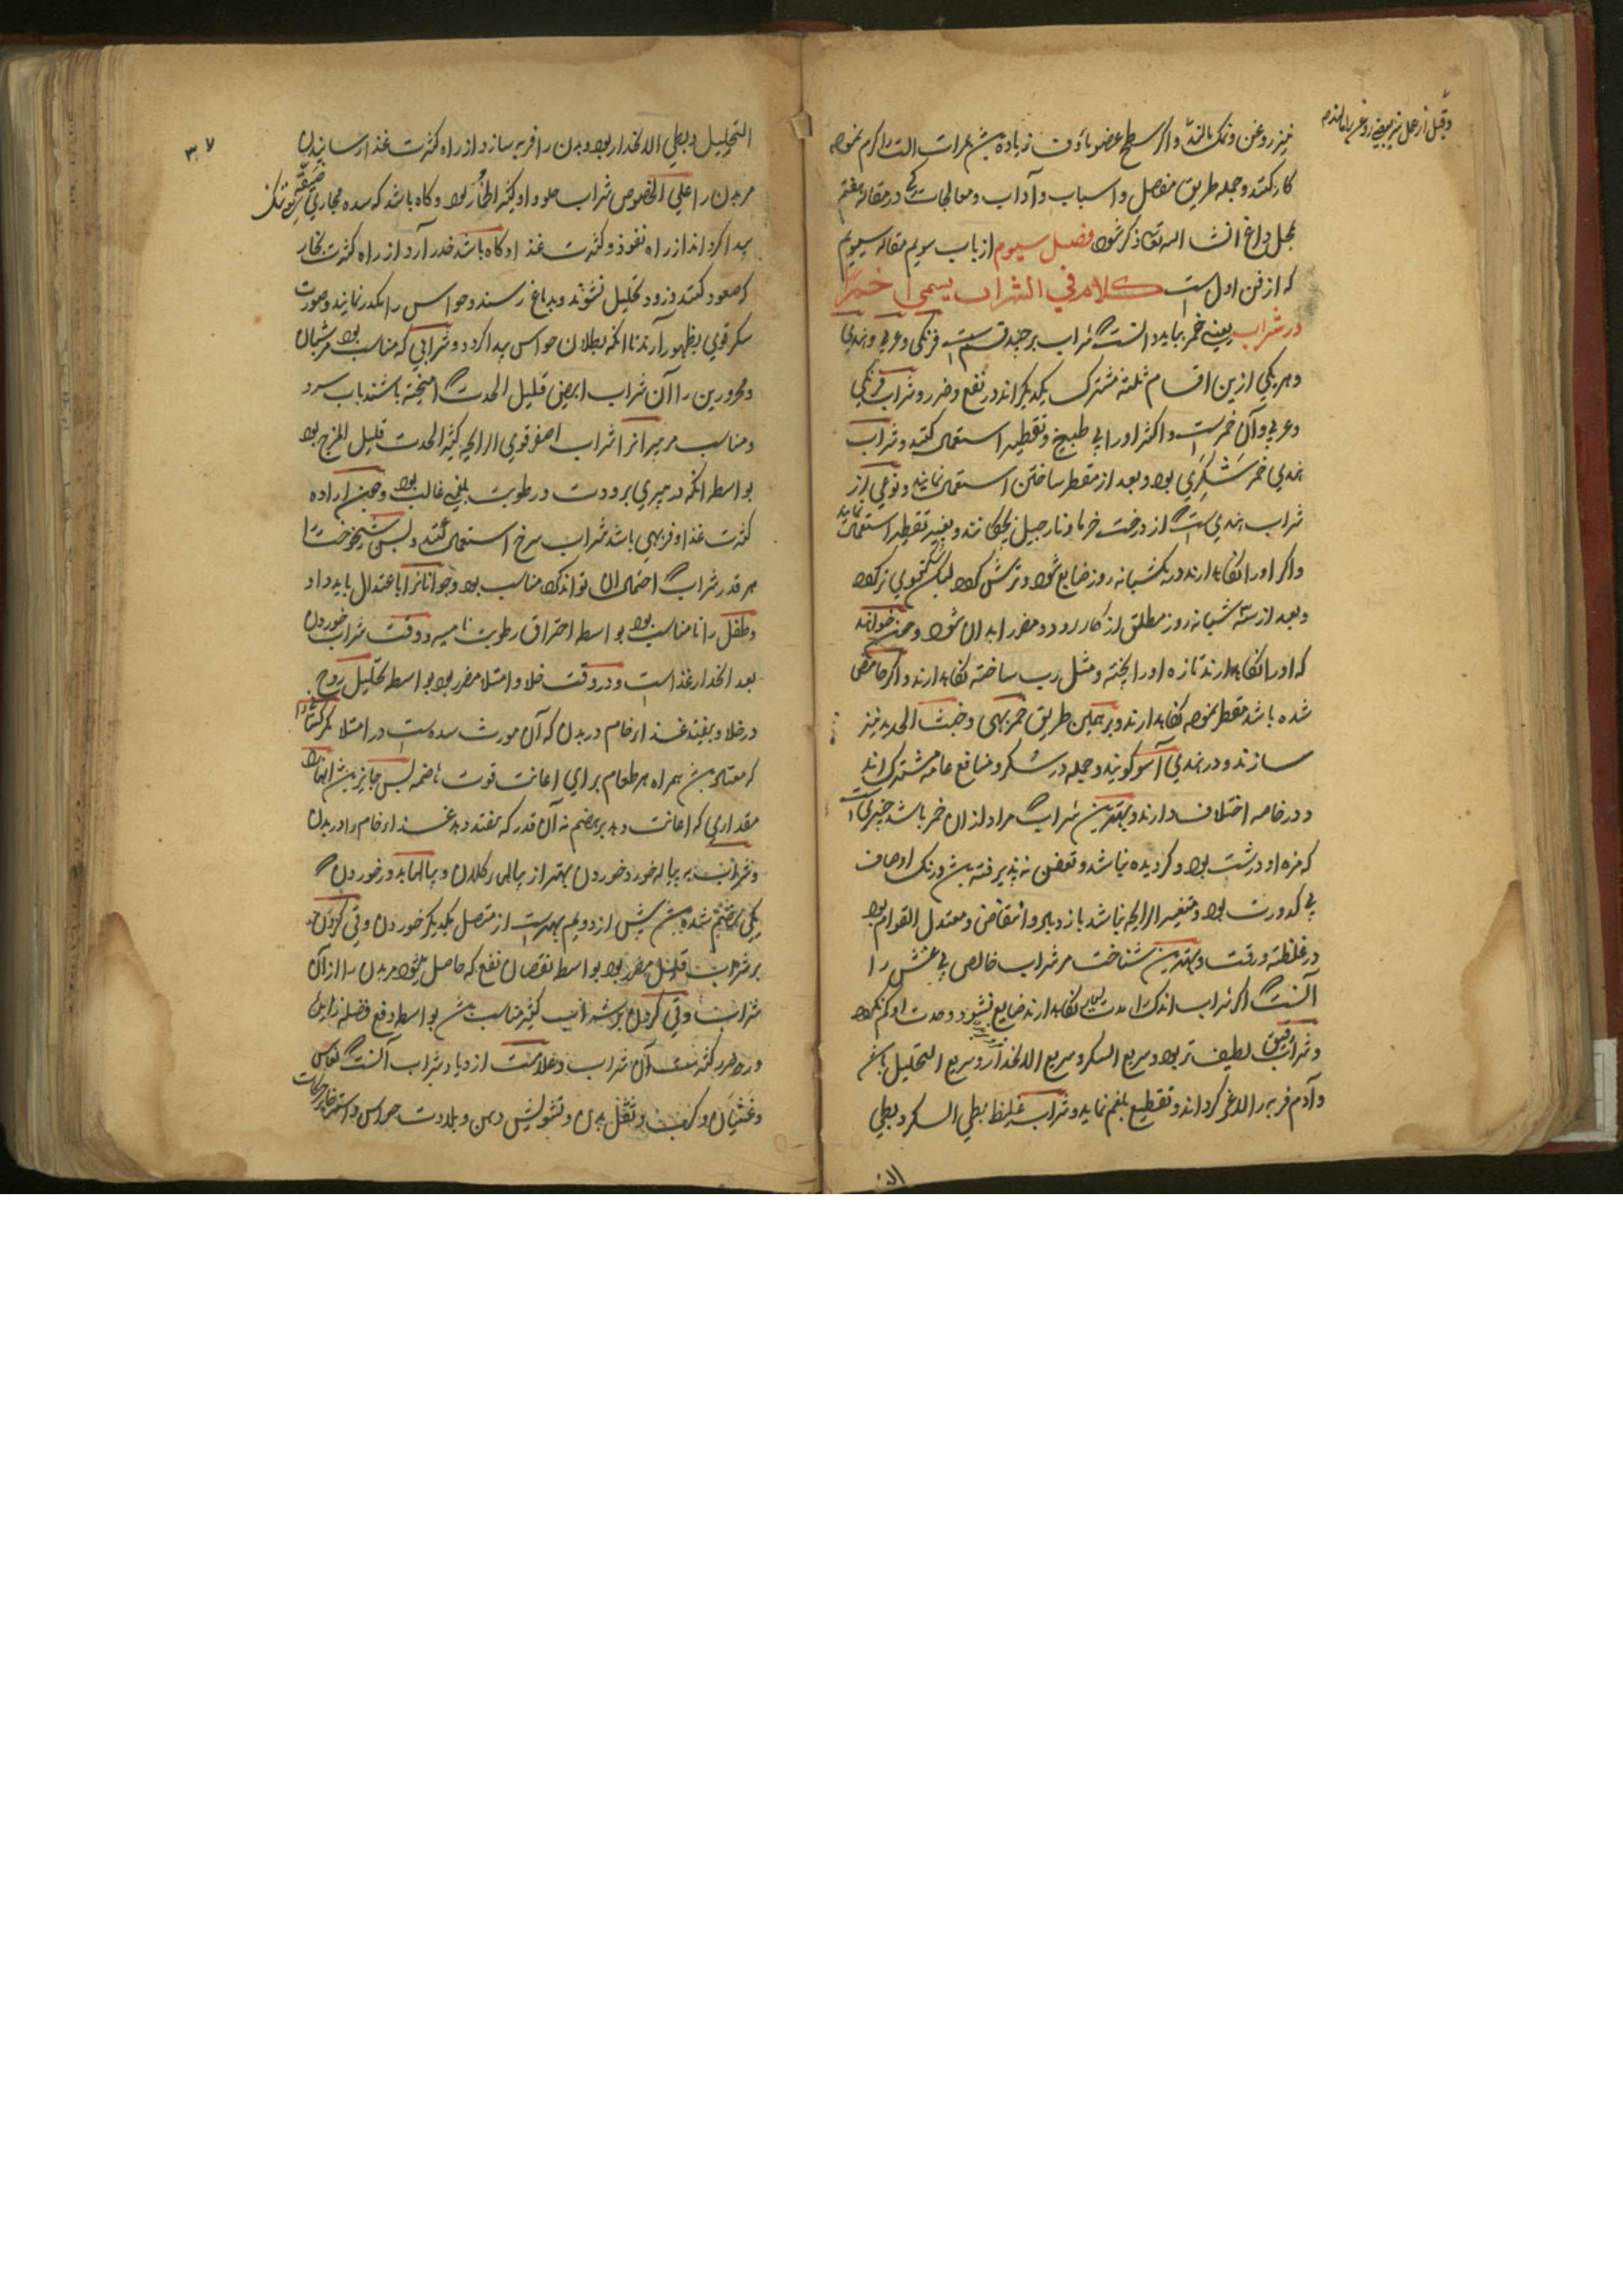 نیز روغن و نمک مالند و اگر سطح عضو ماؤف زیاده باشد بمرات آلت را گرم نموده
کار کنند و جمله طریق مفصل و اسباب و آداب و معالجات کی در مقاله هفتم
بمحل داغ انشا الله تعا ذکر شود فصل سیوم از باب سویم مقاله سیویم
که از فن اول است کلام فی الشراب یسمی خمرا
در شراب یعنے خمر بباید دانست که شراب بر چند قسم است فرنگی و عربی و هندی
و هر یکی ازین اقسام ثلثه مشترک یکدیگر اند در نفع و ضرر و شراب فرنگی
و عربی و آن خمر است و اکثر او را بی طبیخ و تقطیر استعمال کنند و شراب
هندی خمر شکری بود و بعد از مقطر ساختن استعمال نمایند و نوعی از
شراب هندی است که از درخت خرما و نارجیل بچکانند و بغیر تقطیر استعمال نمایند
و اگر او را نگاه دارند در یکشبانه روز ضایع شود و ترش گردد
و بعد از سه شبانه روز مطلق از کار رود و مضر ابدان شود و
که او را نگاه دارند تازه او را پخته و مثل رب ساخته نگاه دارند و اگر حامض
شده باشد مقطر نموده نگاه دارند و بر همین طریق خمر بهی و خبث الحدید نیز
سازند و در هندی آسو گویند و جمله در سکر و منافع عامه مشترک اند
و در خاصه اختلاف دارند و بهترین شراب که مراد از ان خمر باشد چیزی است
که مزه او درشت بود و گردیده نباشد و تعفن نپذیرفته باشد و رنگ او صاف
بی کدورت بود و متغیر الرایحه نباشد بازدیاد و انتقاص و معتدل القوام بود
در غلظت و رقت و بهترین شناخت مر شراب خالص بی غش را
آنست که اگر شراب اندک را مدت بسیار نگاه دارند ضایع نشود و حدت او کم نگردد
و شراب رقیق لطیف تر بود و سریع السکر و سریع الانحدار و سریع التحلیل باشد
و آدم فربه را لاغر گرداند و تقطیع بلغم نماید و شراب غلیظ بطی السکر و بطی
۳۷
التحلیل و بطی الانحدار بود و بدن را فربه سازد از راه کثرت غذا رسانیدن
مر بدن را علی الخصوص شراب حلو و او کثیر البخار بود و گاه باشد که سده مجاری ضیقه
پیدا گرداند از راه نفوذ و کثرت غذا و گاه باشد خدر آرد از راه کثرت بخار
که صعود کنند و زود تحلیل نشوند و بدماغ رسند و حواس را مکدر نمایند و صورت
سکر قوی بظهور آرند تا آنکه بطلان حواس پیدا گردد و شرابی که مناسب بود مر شبان
و محرورین را آن شراب ابیض قلیل الحدت که آمیخته باشند بآب سرد
و مناسب مر پیرانرا شراب اصفر قوی الرایحه کثیر الحدت قلیل المزج بود
بواسطه آنکه در پیری برودت و رطوبت بلغمی غالب بود و چون اراده
کثرت غذا و فربهی باشد شراب سرخ استعمال کنند و سن شیخوخت را
هر قدر شراب که احتمال آن تواند کرد مناسب بود و جوانانرا باعتدال باید داد
و طفل را نا مناسب بود بواسطه احتراق رطوبت نامیه و وقت شراب خوردن
بعد انحدار غذا است و در وقت خلا و امتلا مضر بود بواسطه تحلیل روح
در خلا و بفیند غذا خام در بدن که آن مورث سده است در امتلا مگر کسانرا
که معتاد باشند همراه هر طعام برای اعانت قوت هاضمه پس جایز باشد
مقداری که اعانت دهد بر هضم نه آن قدر که بفتد دهد غذا خام را در بدن
و شراب به پیاله خورد خوردن بهتر از پیاله کلان و پیاله باید و خوردن که
یکی هضم شده باشد پیش از دویم بهتر است از متصل یکدیگر خوردن و قی کردن
بر شراب قلیل مضر بود بواسطه نقصان نفع که حاصل میشود مر بدن را از آن
شراب و قی کردن بر شراب کثیر مناسب باشد بواسطه دفع فضله زایل
و رد ضرر کثرت آن شراب و علامت ازدیاد شراب آنست که نعاس
و غثیان و کرب و ثقل بدن و تشویش ذهن و بلادت حواس و استرخا حرکات